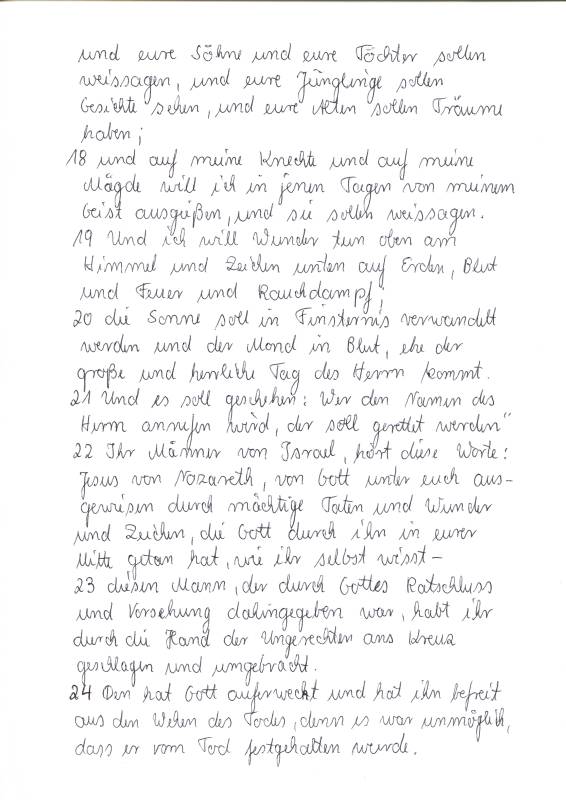 und eure Söhne und eure Töchter sollen
weissagen, und eure Jünglinge sollen
Gesichte sehen, und eure Alten sollen Träume
haben;
18 und auf meine Knechte und auf meine
Mägde will ich in jenen Tagen von meinem
Geist ausgießen, und sie sollen weissagen.
19 Und ich will Wunder tun oben am
Himmel und Zeichen unten auf Erden, Blut
und Feuer und Rauchdampf;
20 die Sonne soll in Finsternis verwandelt
werden und der Mond in Blut, ehe der
große und herrliche Tag des Herrn kommt.
21 Und es soll geschehen: Wer den Namen des
Herrn anrufen wird, der soll gerettet werden"
22 Ihr Männer von Israel, hört diese Worte:
Jesus von Nazareth, von Gott unter euch aus-
gewiesen durch mächtige Taten und Wunder
und Zeichen, die Gott durch ihn in eurer
Mitte getan hat, wie ihr selbst wisst -
23 diesen Mann, der durch Gottes Ratschluss
und Vorsehung dahingegeben war, habt ihr
durch die Hand der Ungerechten ans Kreuz
geschlagen und umgebracht.
24 Den hat Gott auferweckt und hat ihn befreit
aus den Wehen des Todes, denn es war unmöglich,
dass er vom Tod festgehalten wurde.